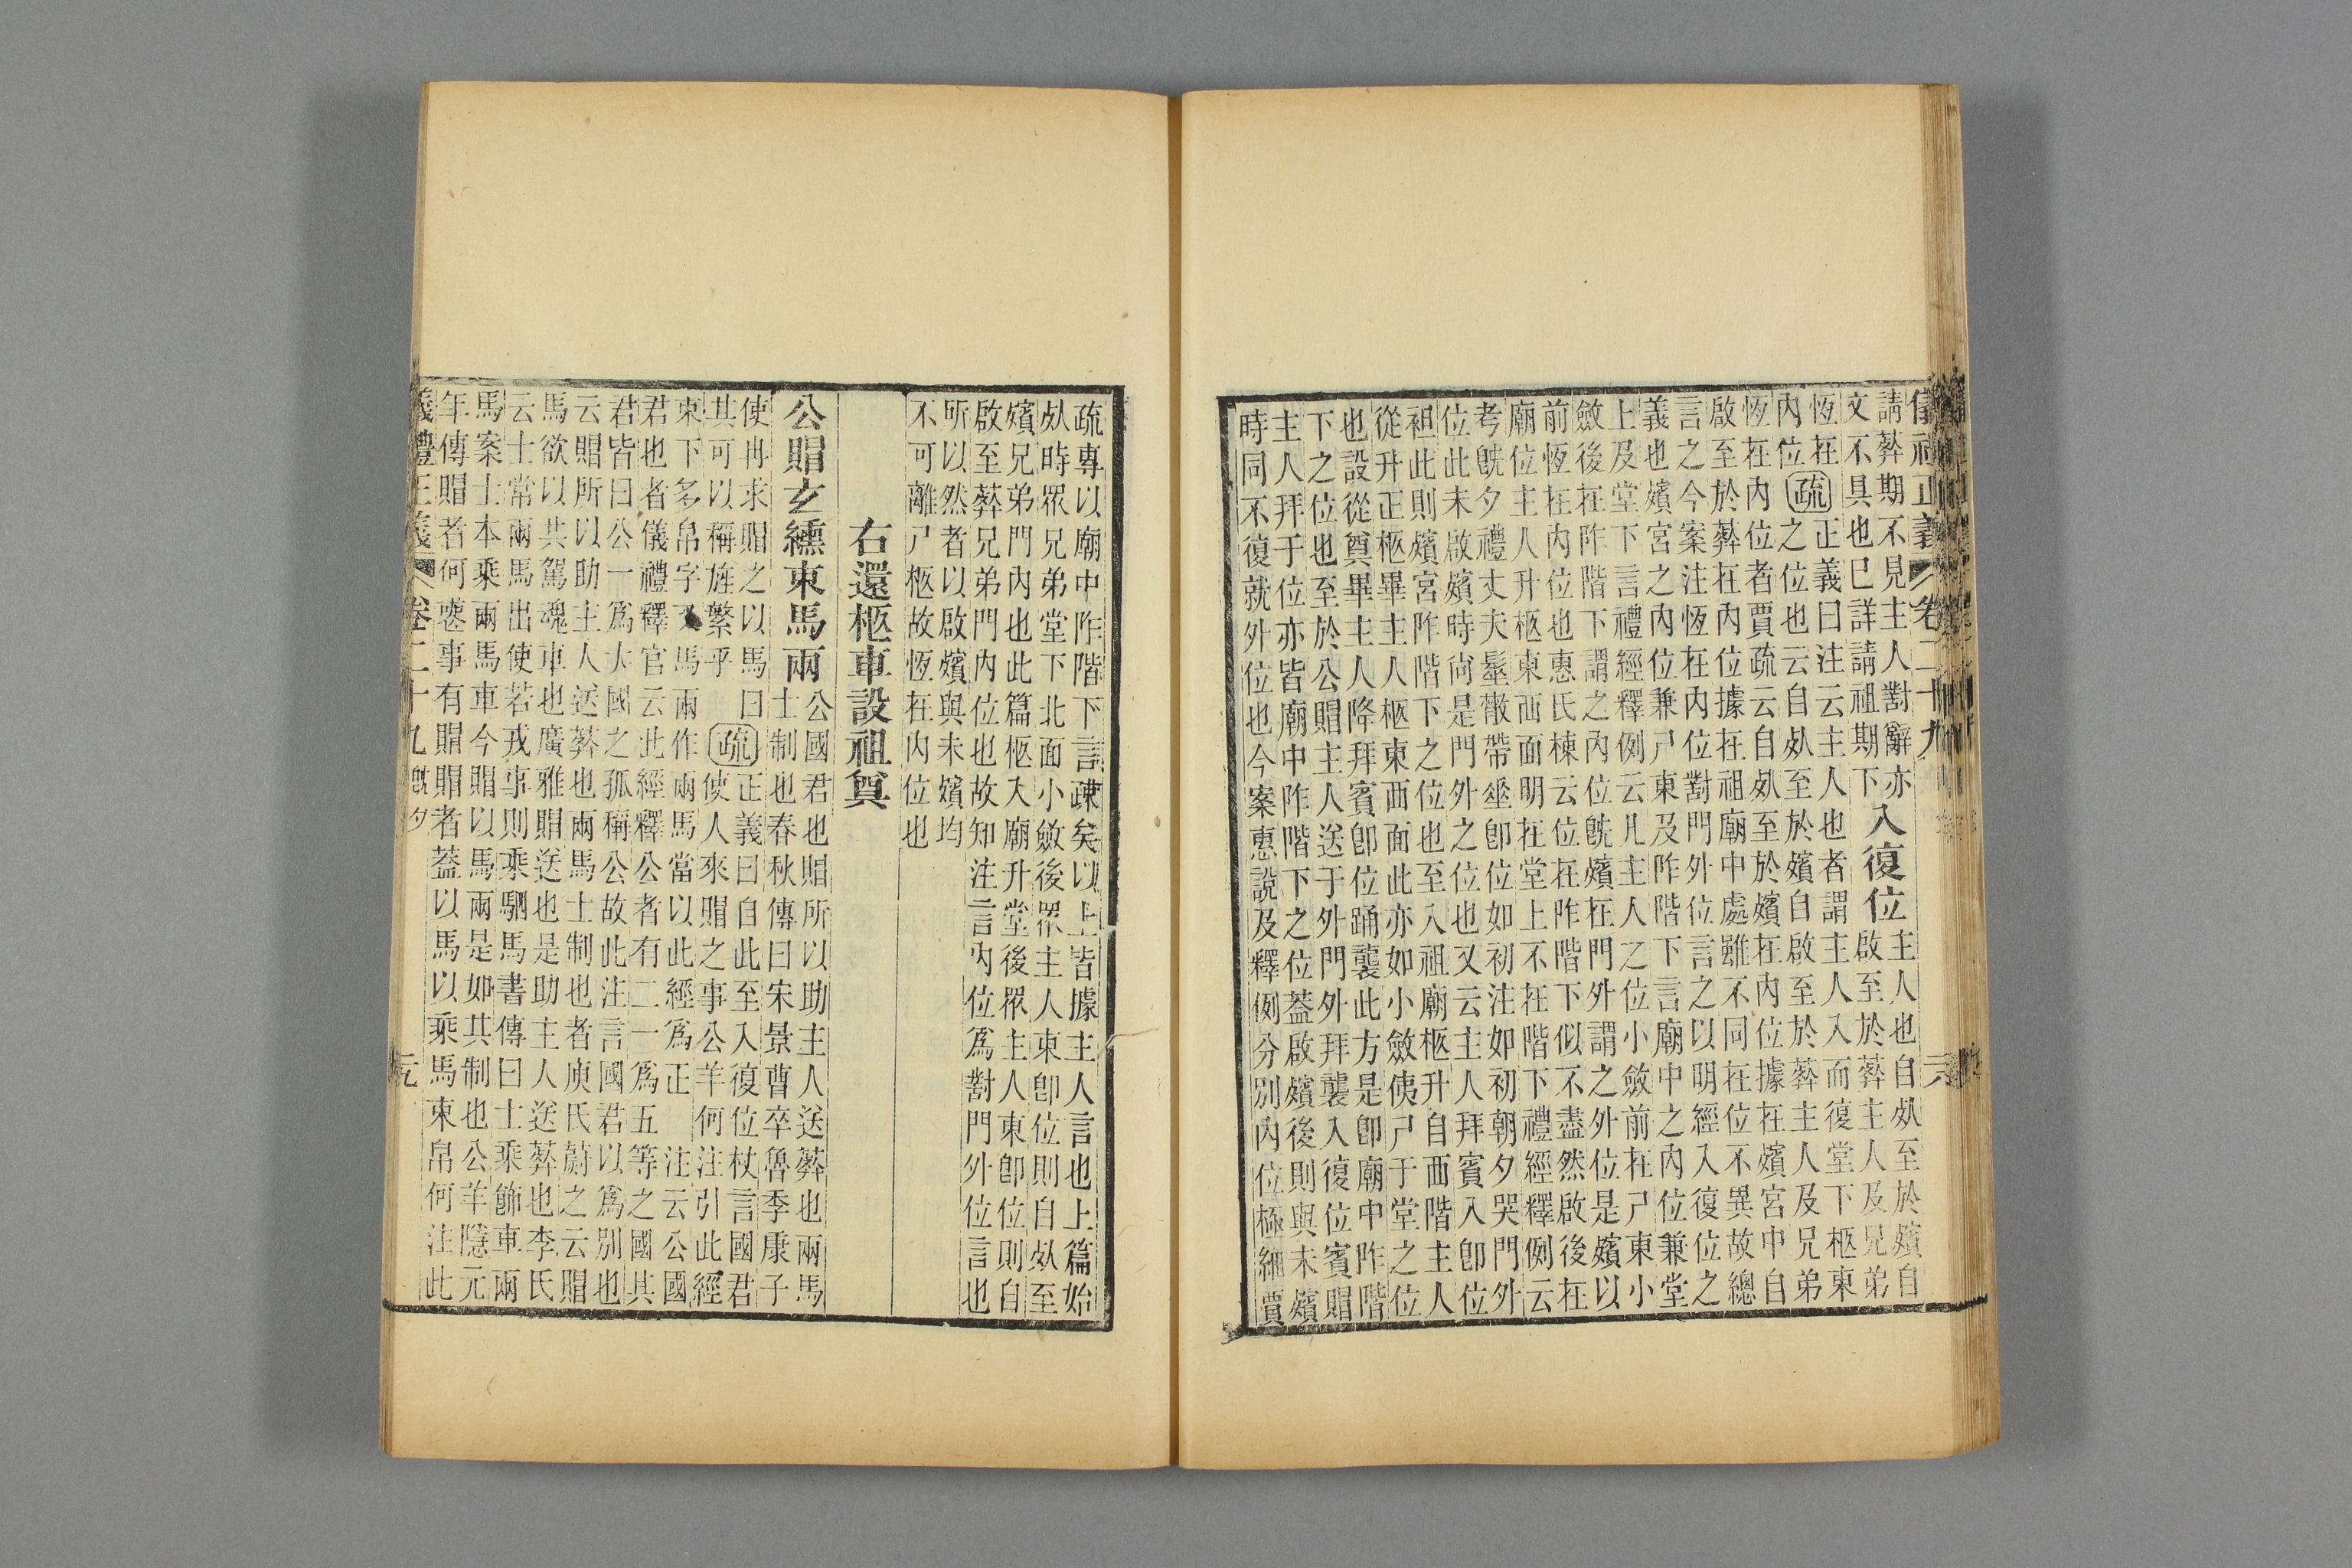 儀禮正義 卷二十九
請葬期不見主人對辭亦
文不具也巳詳請祖期下
入復位
主人也自死至於殯自
啟至於葬主人及兄弟
恆在
內位
疏
正義曰注云主人也者謂主人入而復堂下柩東
之位也云自死至於殯自啟至於葬主人及兄弟
恆在內位者賈疏云自死至於殯在內位據在殯宮中自
啟至於葬在內位據在祖廟中處雖不同在位不異故總
言之今案注恆在內位對門外位言之以明經入復位之
義也殯宮之內位兼尸東及阼階下言廟中之內位兼堂
上及堂下言禮經釋例云凡主人之位小斂前在尸東小
斂後在阼階下謂之內位旣殯在門外謂之外位是殯以
前恆在內位也惠氏棟云位在阼階下似不盡然啟後在
廟位主人升柩東西面明在堂上不在階下禮經釋例云
考旣夕禮丈夫髽散帶垂卽位如初注如初朝夕哭門外
位此未啟殯時尚是門外之位也又云主人拜賓入卽位
袒此則殯宮阼階下之位也至入祖廟柩升自西階主人
從升正柩畢主人柩東西面此亦如小斂俠尸于堂之位
也設從奠畢主人降拜賓卽位踊襲此方是卽廟中阼階
下之位也至於公賵主人送于外門外拜襲入復位賓賵
主人拜于位亦皆廟中阼階下之位蓋啟殯後則與未殯
時同不復就外位也今案惠說及釋例分別內位極細賈
疏專以廟中阼階下言疎矣以上皆據主人言也上篇始
死時眾兄弟堂下北面小斂後眾主人東卽位則自死至
殯兄弟門內也此篇柩入廟升堂後眾主人東卽位則自
啟至葬兄弟門內位也故知注言內位為對門外位言也
所以然者以啟殯與未殯均
不可離尸柩故恆在內位也
右還柩車設祖奠
公賵玄纁束馬兩
公國君也賵所以助主人送葬也兩馬
士制也春秋傳曰宋景曹卒魯季康子
使冉求賵之以馬曰
其可以稱旌繁乎
疏
正義曰自此至入復位杖言國君
使人來賵之事公羊何注引此經
束下多帛字又馬兩作兩馬當以此經為正 注云公國
君也者儀禮釋官云此經釋公者有二一為五等之國其
君皆曰公一為大國之孤稱公故此注言國君以為別也
云賵所以助主人送葬也兩馬士制也者庾氏蔚之云賵
馬欲以共駕魂車也廣雅賵送也是助主人送葬也李氏
云士常兩馬出使若戎事則乘駟馬書傳曰士乘飾車兩
馬案士本乘兩馬車今賵以馬兩是如其制也公羊隱元
年傳賵者何喪事有賵賵者蓋以馬以乘馬束帛何注此
儀禮正義 卷二十九 旣夕